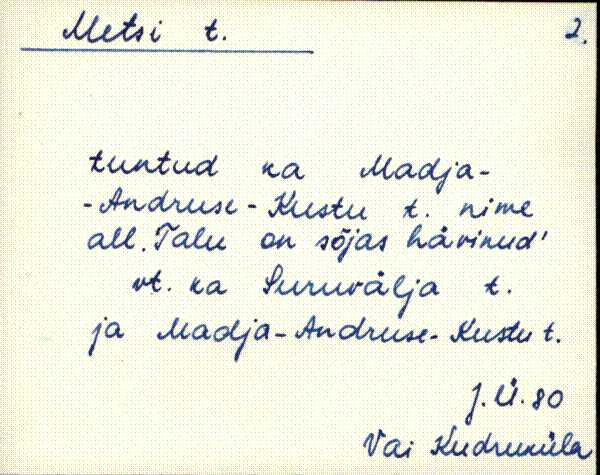 Metsi t. 2.
tuntud ka Madja-
-Andruse-Kustu t. nime
all. Talu on sõjas hävinud'
vt. ka Suruvälja t.
ja Madja-Andruse-Kustu t.
J. Ü. 80
Vai Kudruküla